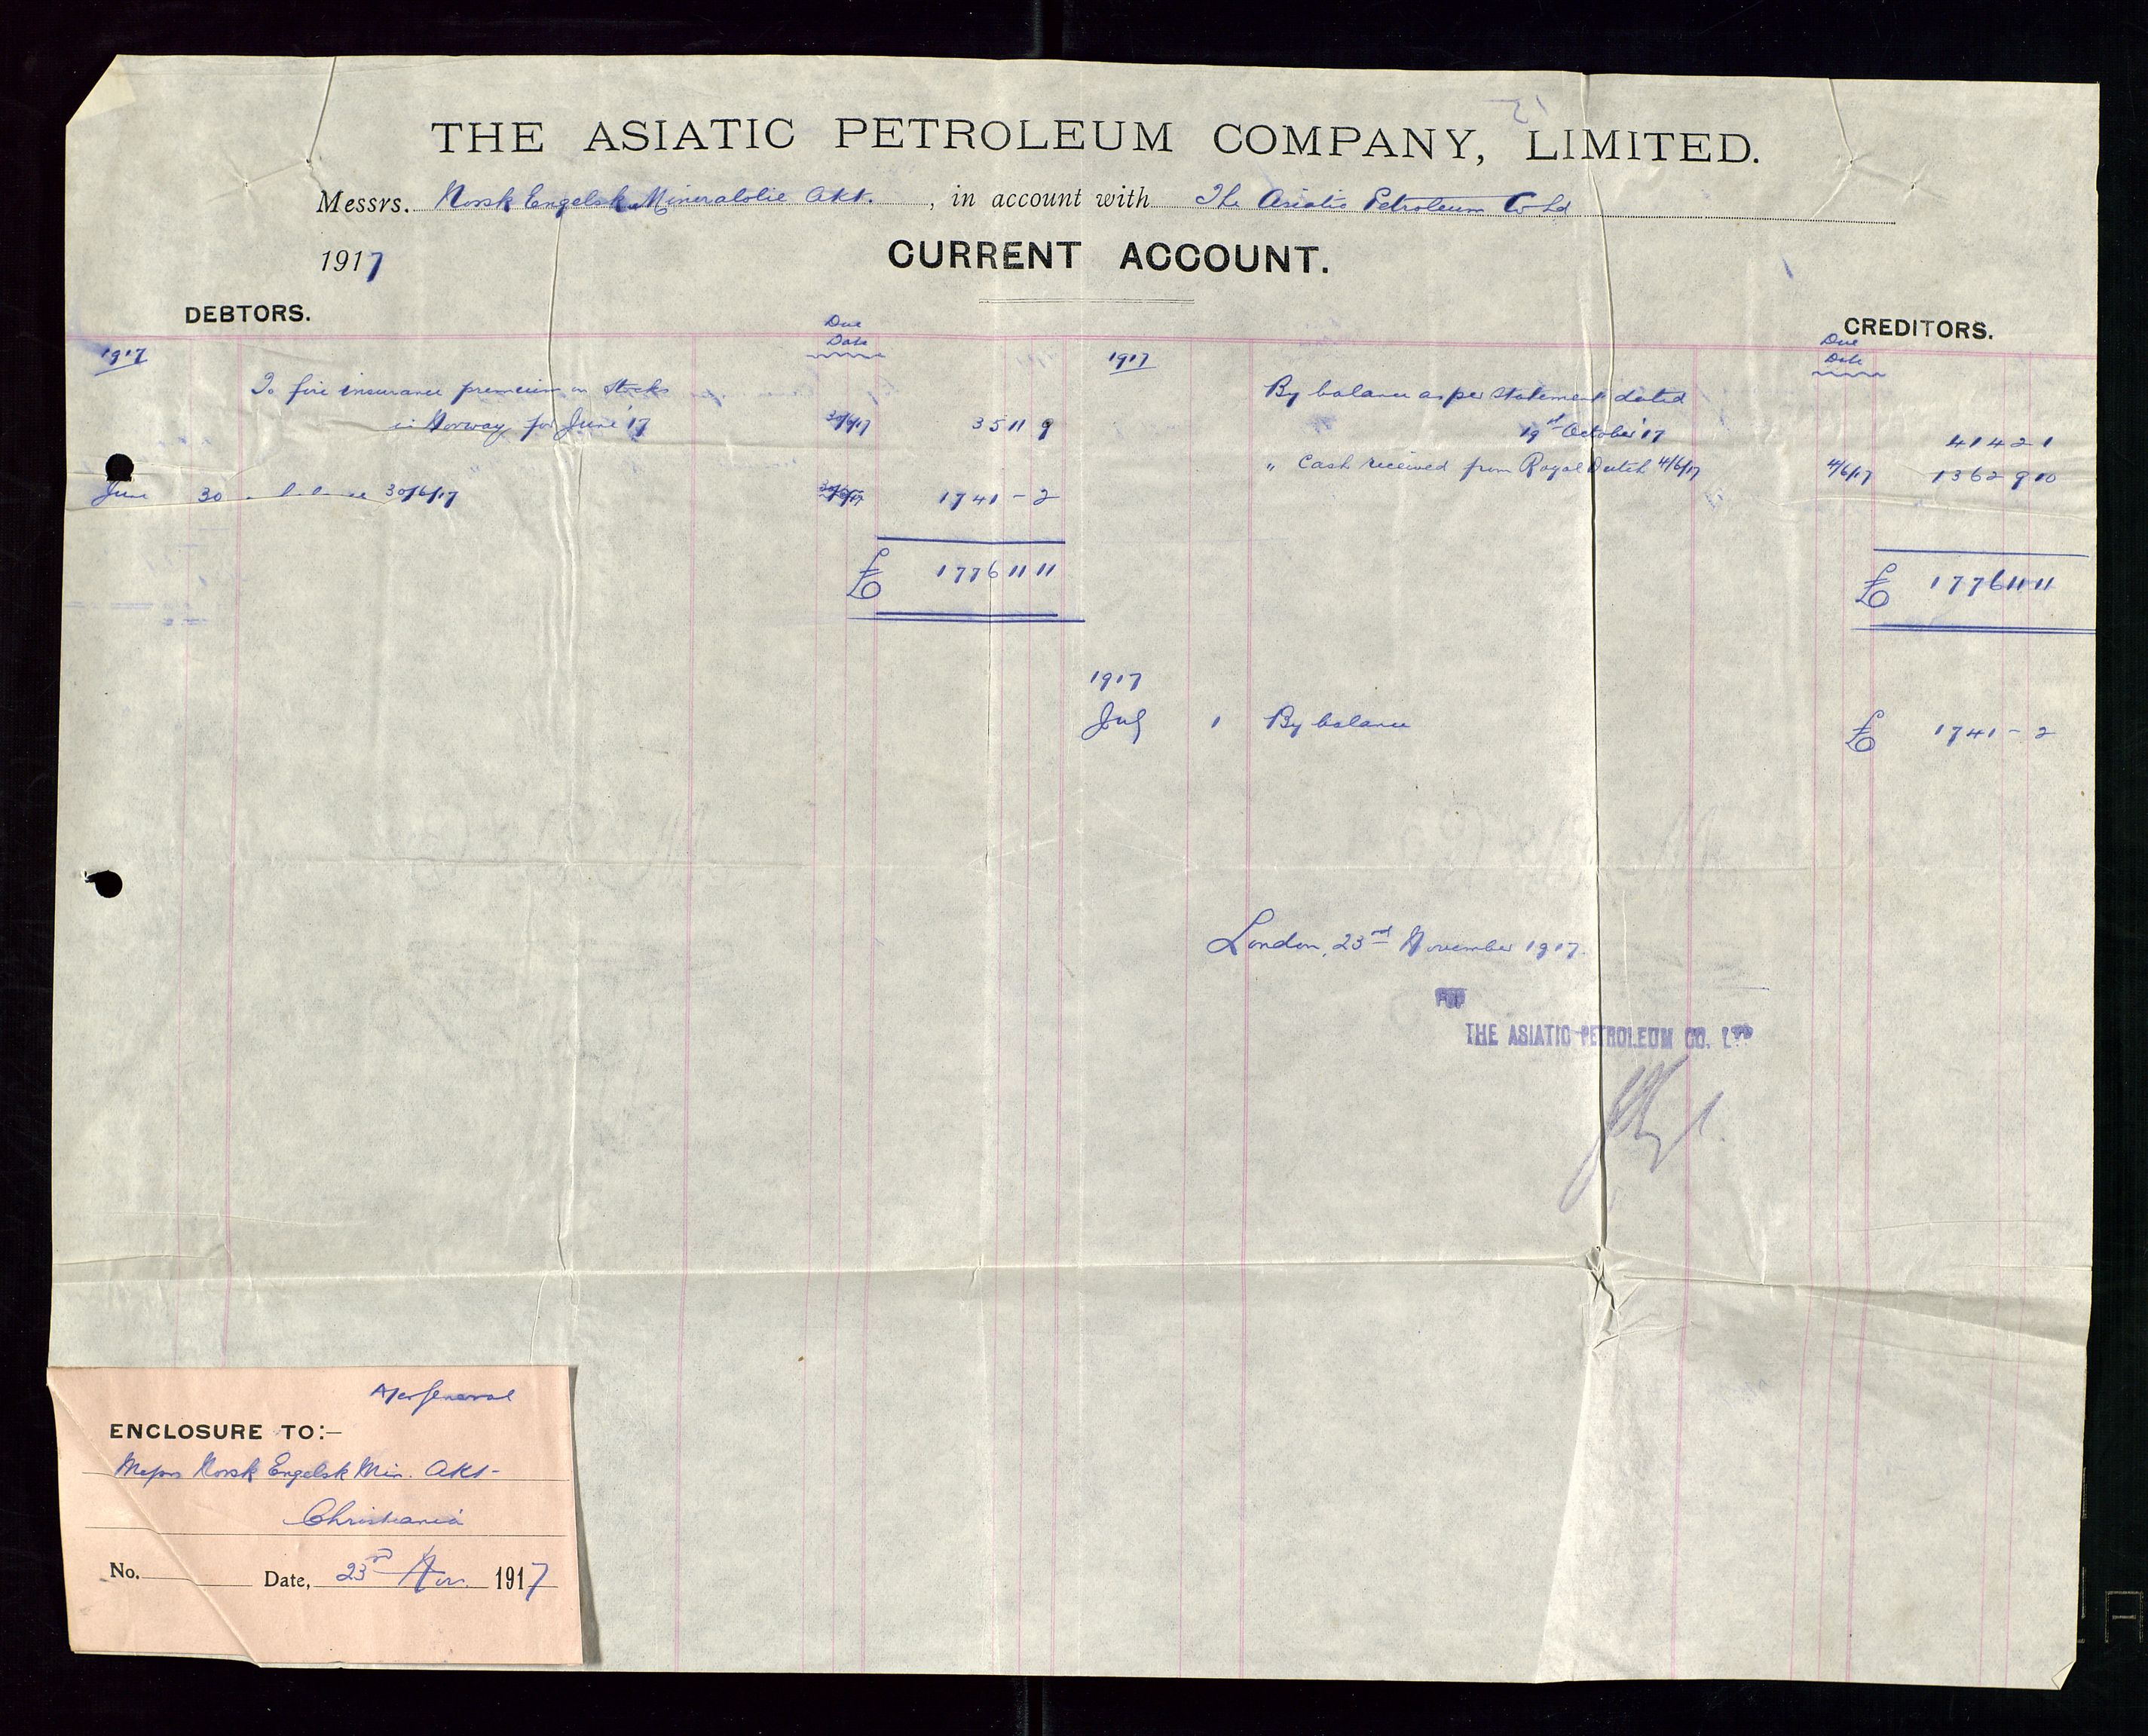 THE ASIATIC PETROLEUM COMPANY, LIMITED.
Messrs. Norsk Engelsk Mineralolie Akt. , in account with The Asiatic Petroleum Co Ld
1917 CURRENT ACCOUNT.
DEBTORS.
CREDITORS.
1917
Due
Date
To fire insurance premium on stocks
in Norway for June '17 30/6/17 35 11 9
June 30 balance 30/6/17 30/6/17 1741 - 2
£ 1776 11 11
1917
Due
Date
By balance as per statement dated
19st October '17 414 2 1
" Cash received from Royal Dutch 4/6/17 4/6/17 1362 9 10
£ 1776 11 11
1917
July 1 By balance £ 1741 - 2
London, 23rd November 1917.
THE ASIATIC PETROLEUM CO. LTD
General
ENCLOSURE TO:-
Messrs Norsk Engelsk Min. Akt-
Christiania
No. Date, 23rd Nov. 1917